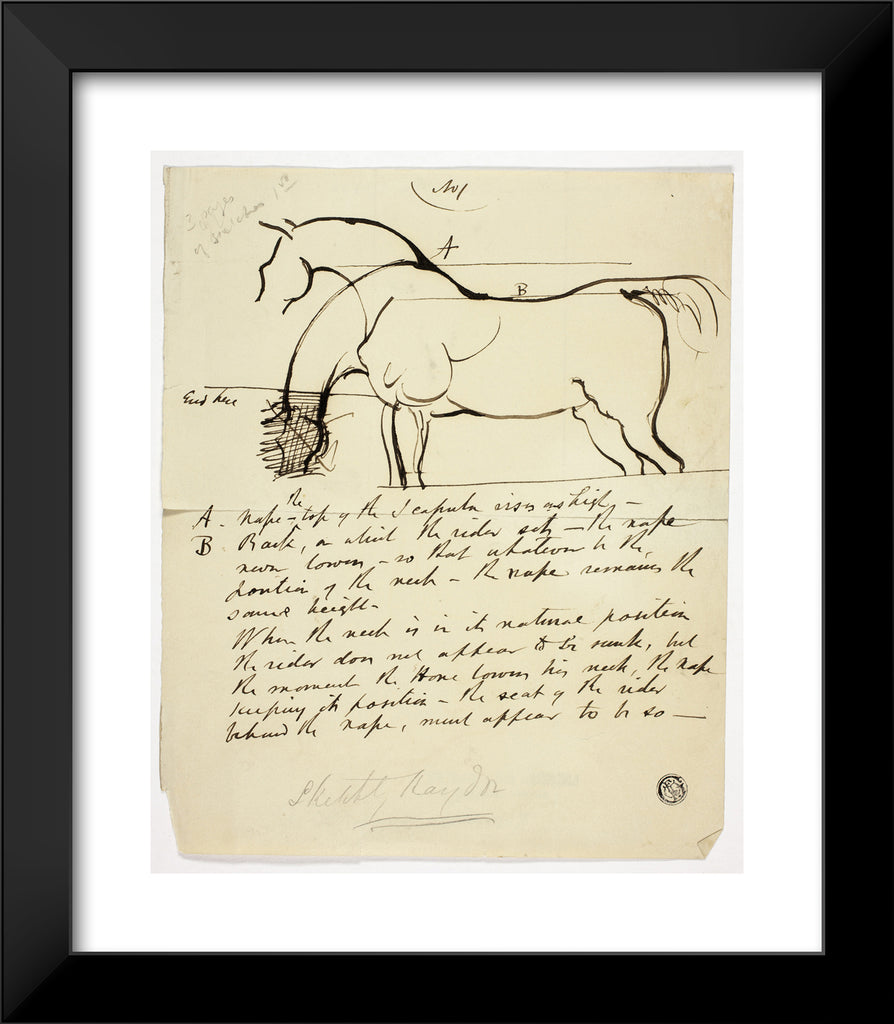 No 1
3 pages
of Sketches 1
A
B
End here
the
A - Nape - top of the Scapula rises as high -
B Back, on which the rider sits - the nape
never lowers - so that whatever be the
position of the neck - the nape remains the
same height -
When the neck is in its natural position
the rider does not appear to be sunk, but
the moment the Horse lowers his neck, the nape
keeping its position - the seat of the rider
behind the nape, must appear to be so -
Sketch by Haydon